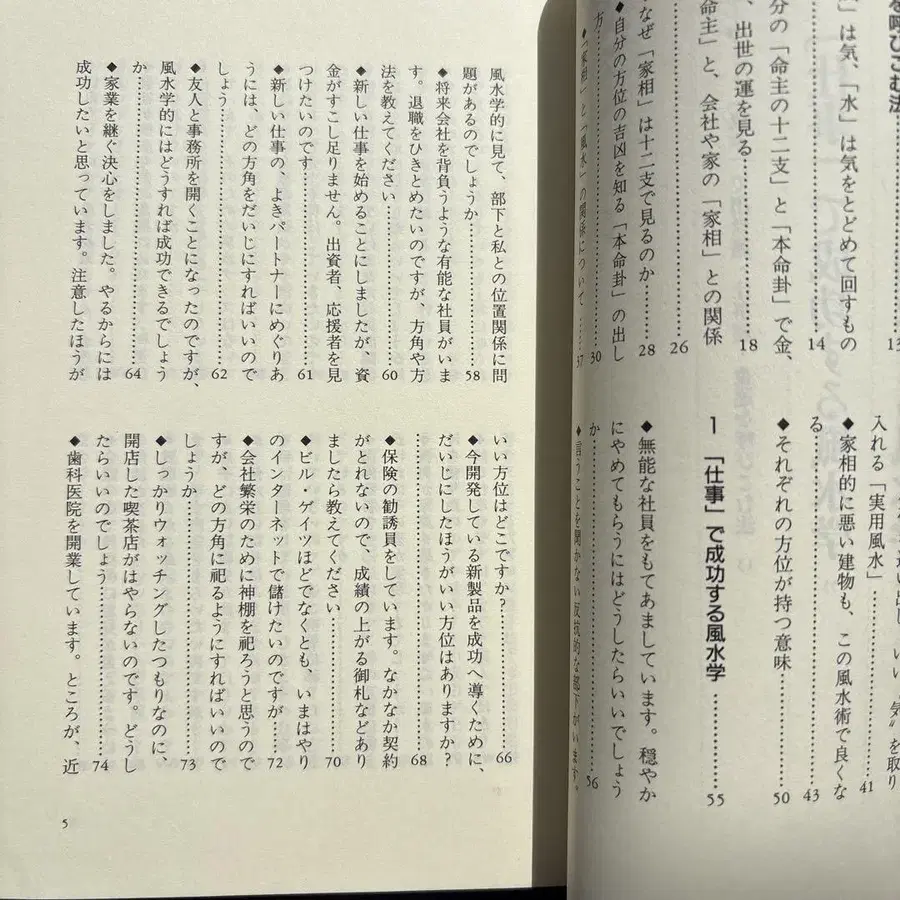 を呼びこむ法
13
」は気、「水」は気をとどめて回すもの
14
分の「命主の十二支」と「本命卦」で金、
、出世の運を見る………18
命主」と、会社や家の「家相」との関係
26
なぜ「家相」は十二支で見るのか………28
◆自分の方位の吉凶を知る「本命卦」の出し
方………30
◆「家相」と「風水」の関係について……37
いい〝気〟を取り
入れる「実用風水」………41
◆家相的に悪い建物も、この風水術で良くな
る………43
◆それぞれの方位が持つ意味………50
1 「仕事」で成功する風水学………55
◆無能な社員をもてあましています。穏やか
にやめてもらうにはどうしたらいいでしょう
か………56
◆言うことを聞かない反抗的な部下がいます。
風水学的に見て、部下と私との位置関係に問
題があるのでしょうか………58
◆将来会社を背負うような有能な社員がいま
す。退職をひきとめたいのですが、方角や方
法を教えてください………60
◆新しい仕事を始めることにしましたが、資
金がすこし足りません。出資者、応援者を見
つけたいのです………61
◆新しい仕事の、よきパートナーにめぐりあ
うには、どの方角をだいじにすればいいので
しょう………62
◆友人と事務所を開くことになったのですが、
風水学的にはどうすれば成功できるでしょう
か………64
◆家業を継ぐ決心をしました。やるからには
成功したいと思っています。注意したほうが
いい方位はどこですか?………66
◆今開発している新製品を成功へ導くために、
だいじにしたほうがいい方位はありますか?
………68
◆保険の勧誘員をしています。なかなか契約
がとれないので、成績の上がる御札などあり
ましたら教えてください………70
◆ビル・ゲイツほどでなくとも、いまはやり
のインターネットで儲けたいのですが……72
◆会社繁栄のために神棚を祀ろうと思うので
すが、どの方角に祀るようにすればいいので
しょうか………73
◆しっかりウォッチングしたつもりなのに、
開店した喫茶店がはやらないのです。どうし
たらいいのでしょう………74
◆歯科医院を開業しています。ところが、近
5